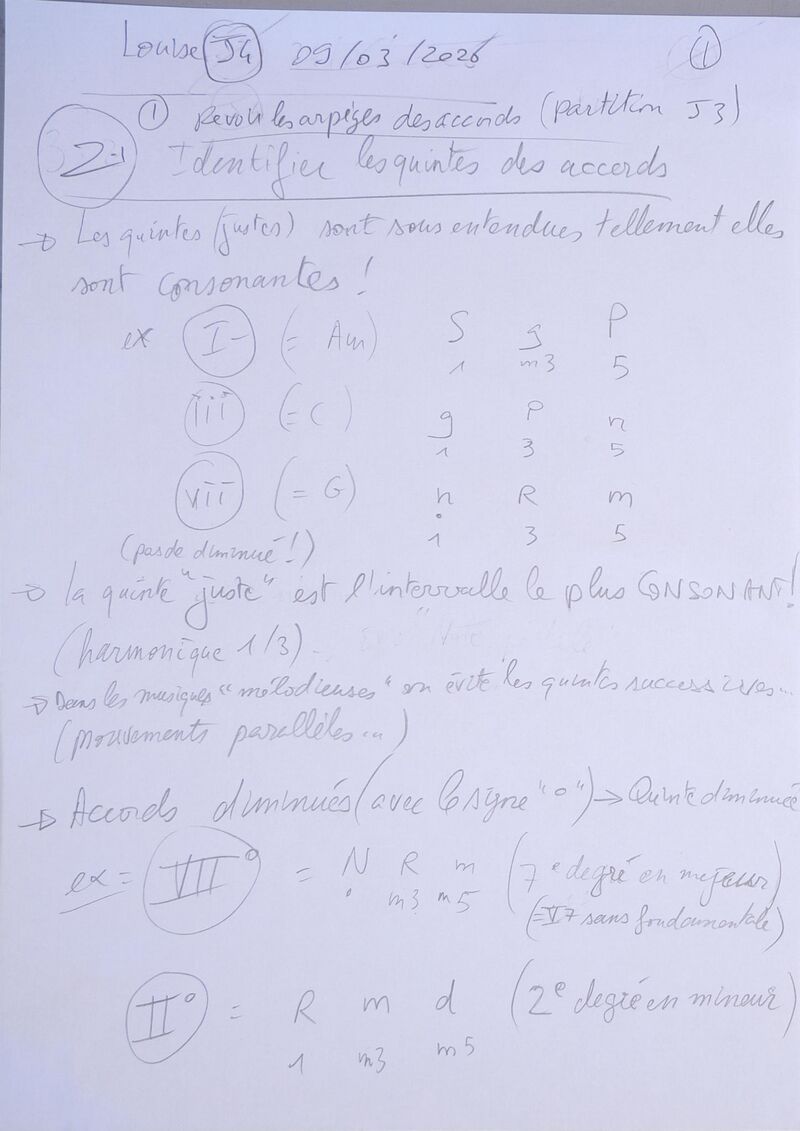 Louise J4 09/03/2026 1
1 Revoir les arpèges des accords (partition J3)
2-1 Identifier les quintes des accords
→ Les quintes (justes) sont sous entendues tellement elles
sont consonantes !
ex I- (= Am) S g P
1 m3 5
iii (= C) g P n
1 3 5
vii (= G) n R m
(pas de diminué !) 1 3 5
→ la quinte "juste" est l'intervalle le plus CONSONANT !
(harmonique 1/3)
→ Dans les musiques "mélodieuses" on évite les quintes successives...
(mouvements parallèles...)
→ Accords diminués (avec le signe "o") → Quinte diminuée
ex = VII° = N R m (7e degré en majeur)
m3 m5 (=V7 sans fondamentale)
II° = R m d (2e degré en mineur)
1 m3 m5